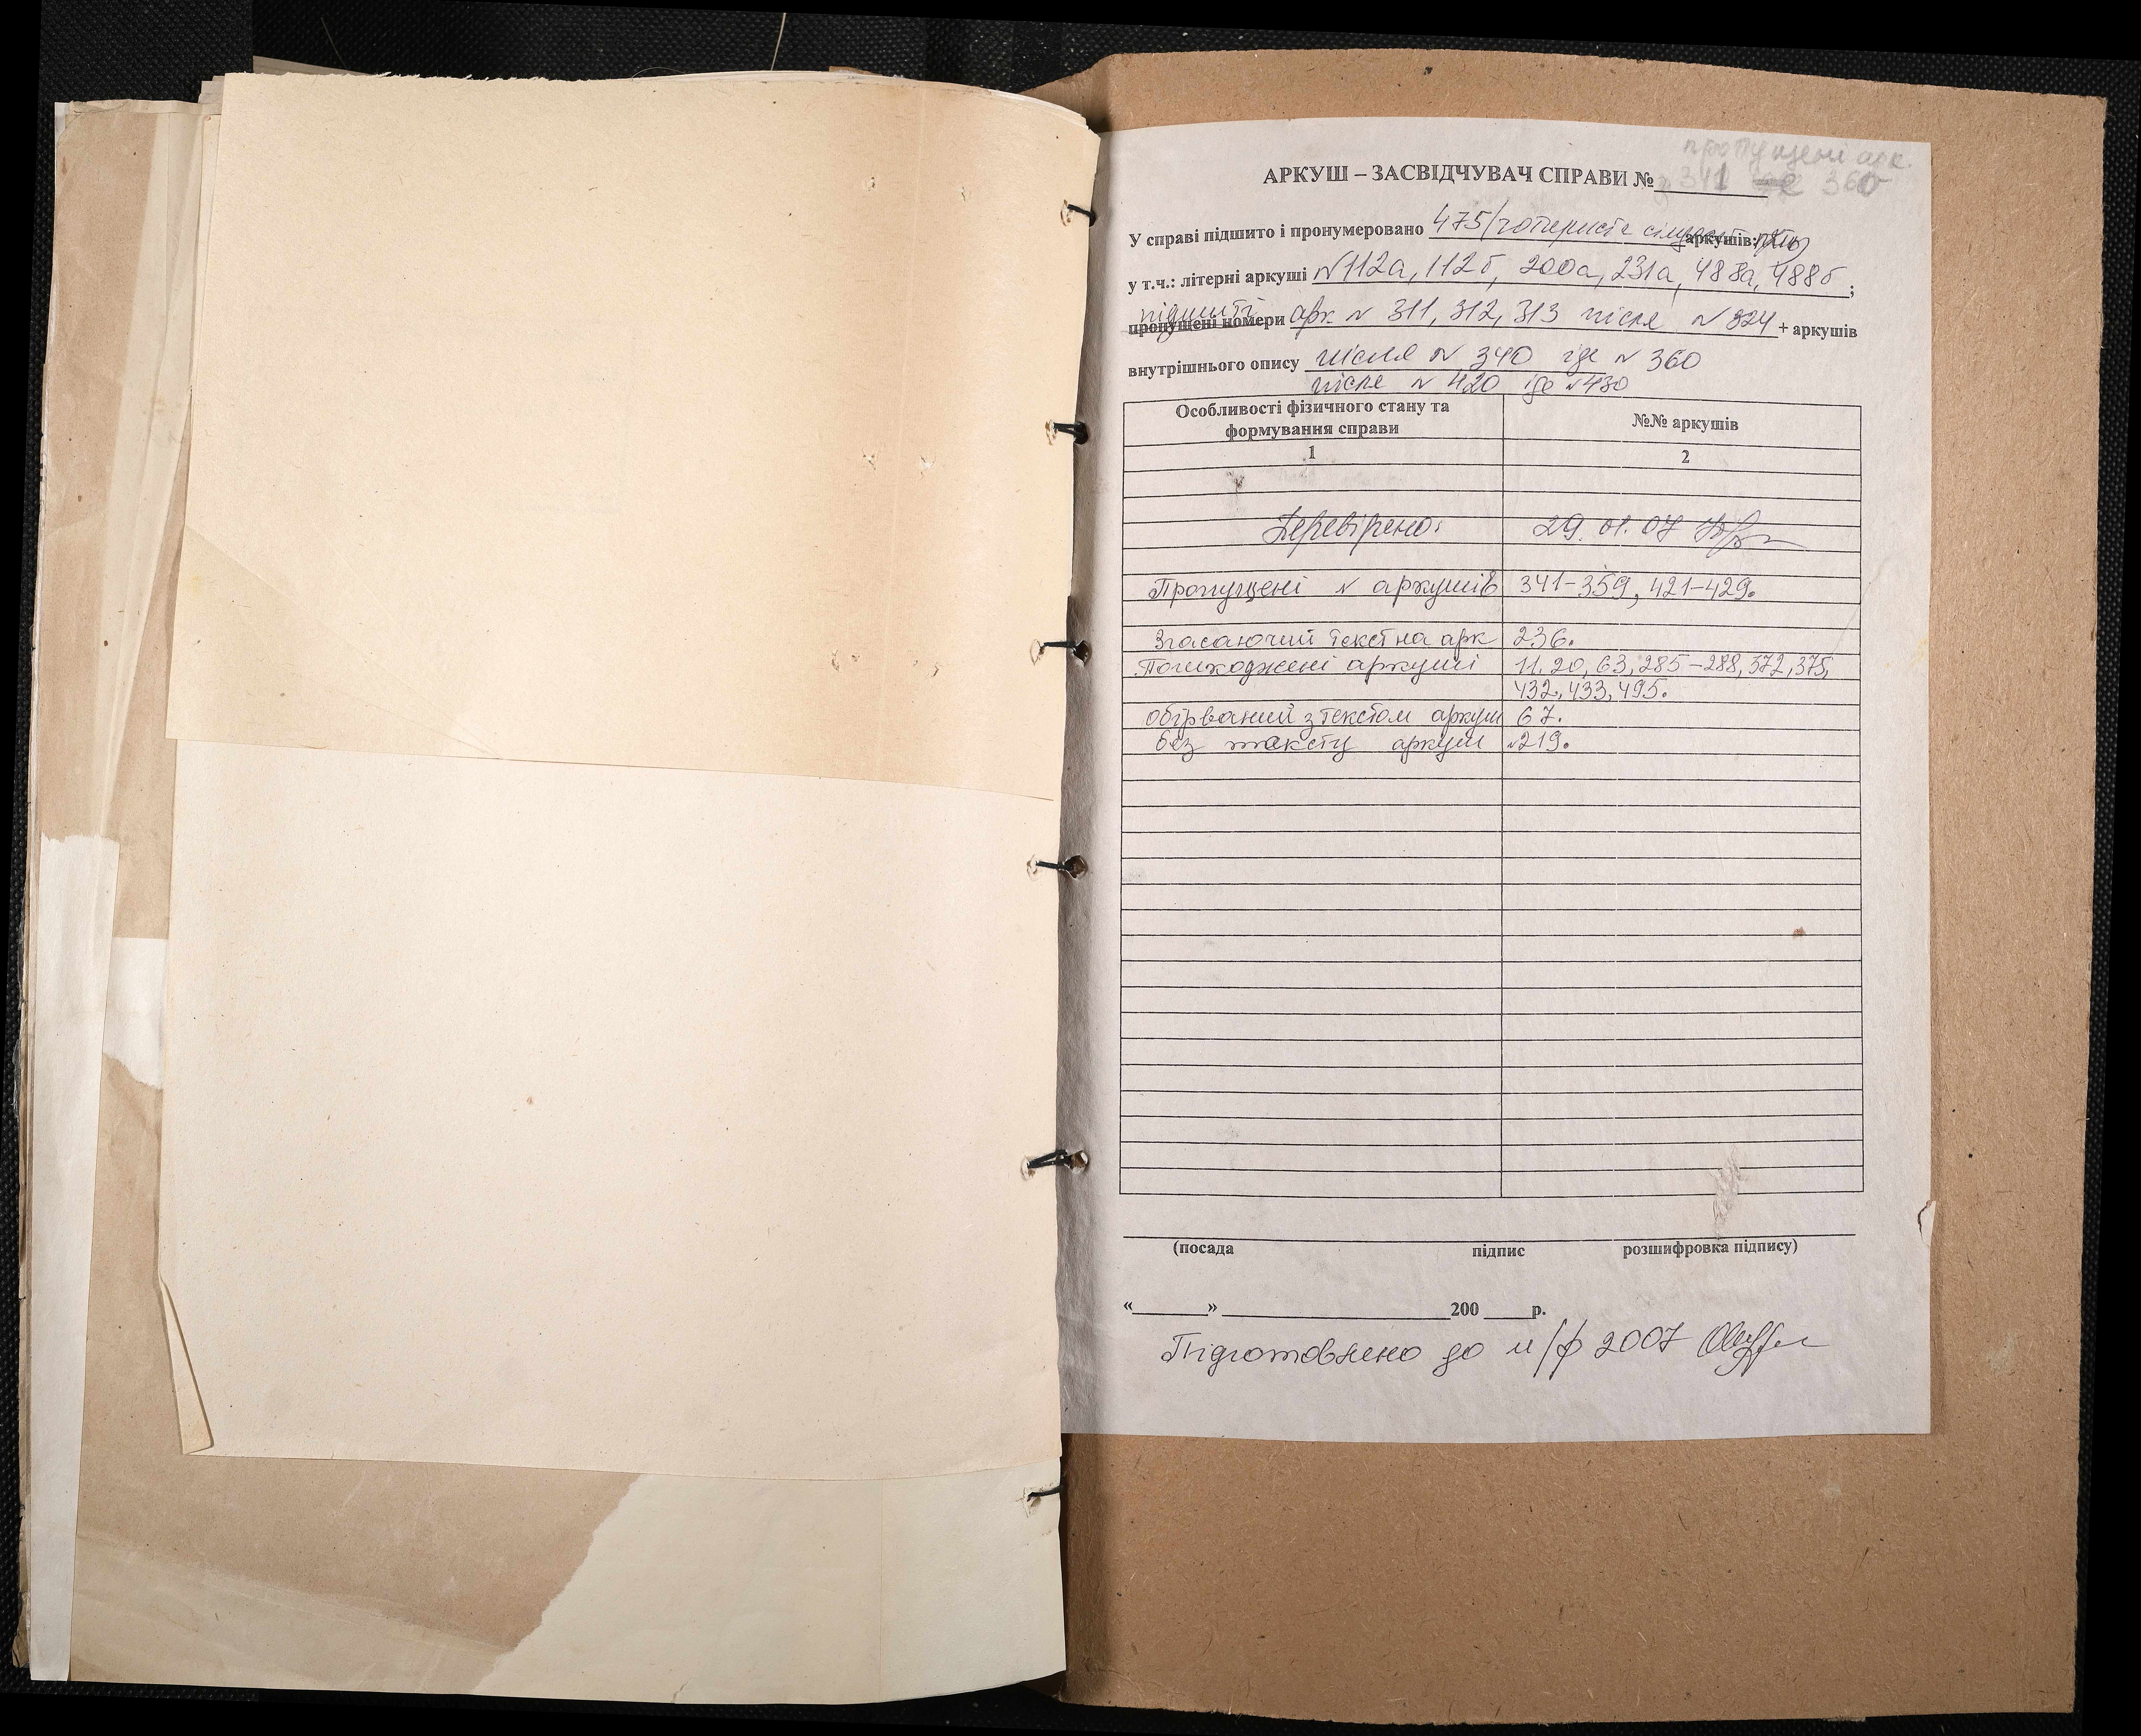 пропущені арк.
АРКУШ – ЗАСВІДЧУВАЧ СПРАВИ № 341 360
У справі підшито і пронумеровано 475 /чотириста сімдесят аркушів: п'ять)
у т.ч.: літерні аркуші №112а, 112б, 200а, 231а, 488а, 488б ;
підшиті
пропущені номери арк № 311, 312, 313 після № 324 + аркушів
внутрішнього опису після № 340 іде № 360
після № 420 іде №430
Особливості фізичного стану та №№ аркушів
формування справи
1 2
Перевірено: 29. 01. 07
Пропущені № аркушів 341-359, 421-429.
Згасаючий текст на арк 236.
Пошкоджені аркуші 11, 20, 63, 285-288, 372, 375,
432, 433, 495.
обірваний з текстом аркуш 67.
без тексту аркуш №219.
(посада підпис розшифровка підпису)
«______» ______ 200 ___р.
Підготовлено до м/ф 2007